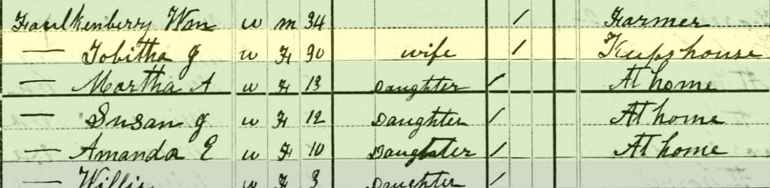 Faulkenberry Wm w m 34 / Farmer
— Tobitha J w F 30 wife / Keeps house
— Martha A w F 13 Daughter / At home
— Susan J w F 12 Daughter / At home
— Amanda E w F 10 Daughter / At home
— Willie w F 3 Daughter /